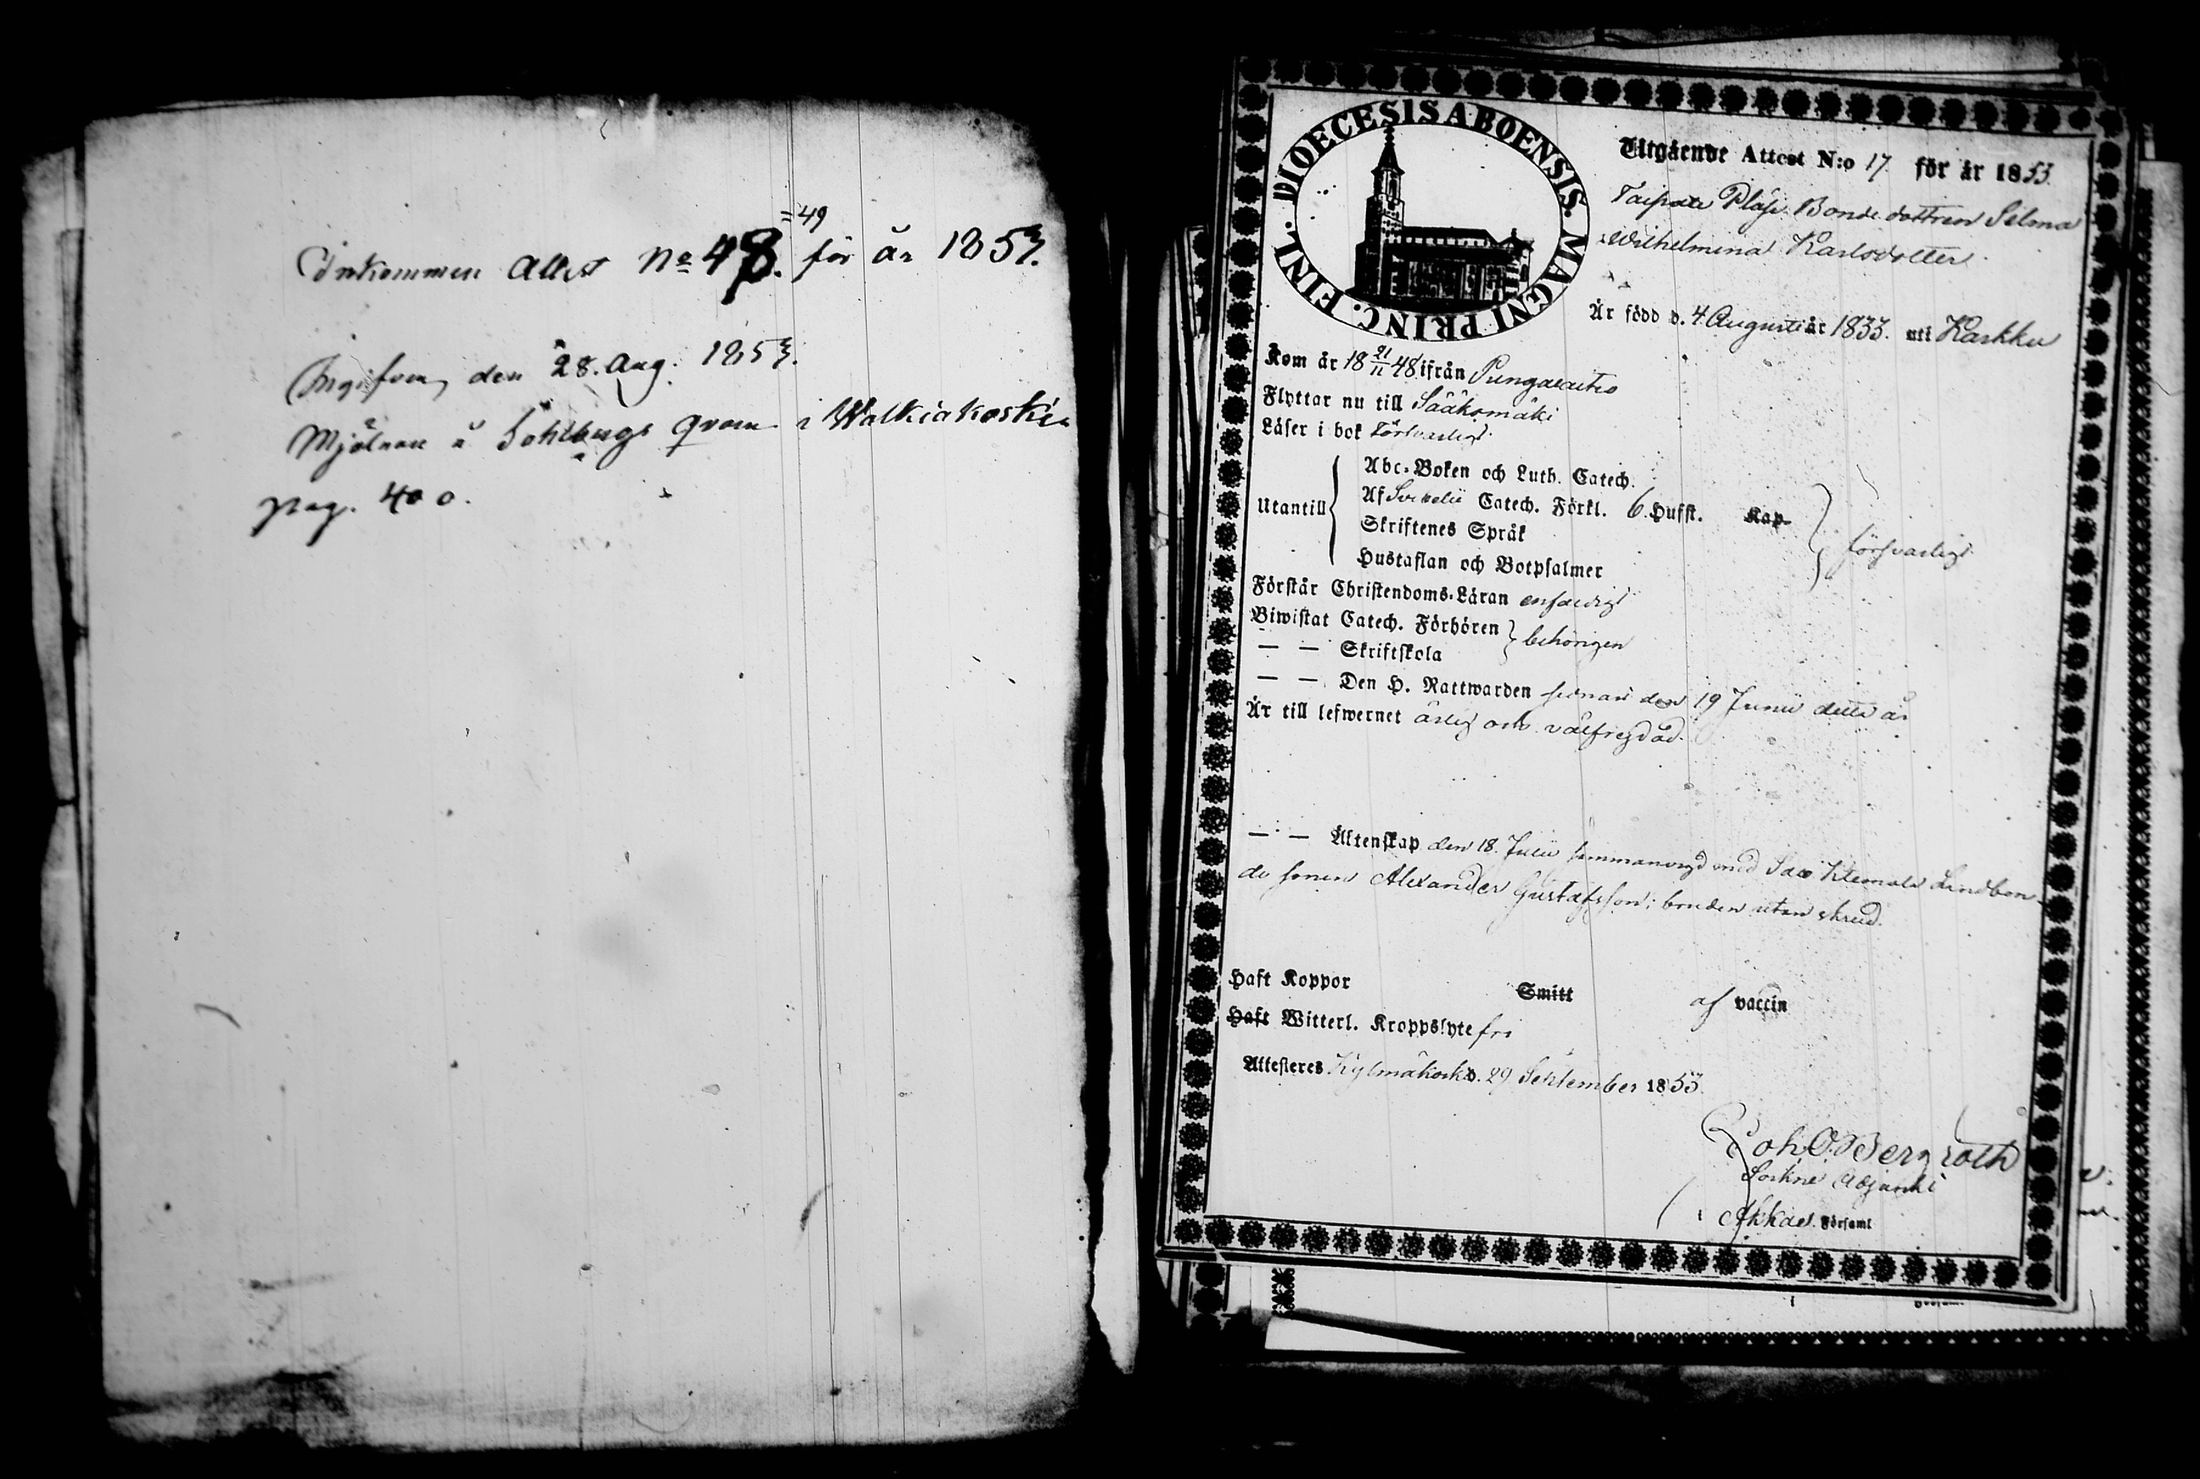 Inkommen Attest No 48. =49 för år 1853.
Ingifven den 28. Aug. 1853.
Mjölnare å Sohlbergs qvarn i Walkiakoski
pag. 400.
DIOECESIS ABOENSIS. MAGNI PRINC. FINL.
Utgående Attest N:o 17 för år 1853.
Taipale Bonde dottren Selma
Wilhelmina Karlsdotter.
Är född d. 4 Augusti år 1833. uti Karkku
Kom år 18 21/11 48 ifrån Pungalaitio
Flyttar nu till Sääksmäki
Läser i bok försvarligt.
Utantill
Abc-Boken och Luth. Catech.
Af Svebelii Catech. Förkl. 6 Hufst. Kap.
Skriftenes Språk
Hustaflan och Botpsalmer
försvarligt
Förstår Christendoms-Läran enfaldigt
Biwistat Catech. Förhören
— — Skriftskola
behörigen
— — Den H. Nattwarden senast den 19 Junii detta år
Är till lefwernet ärlig och välfrejdad.
— — Äktenskap den 18. Julii sammanvigd med Klemola Landbon-
de sonen Alexander Gustafsson; bruden utan skrud.
Haft Koppor Smitt af vaccin
Haft Witterl. Kroppslyte fri
Attesteres Kylmäkoski d. 29 September 1853.
Joh. O. Bergroth
Sockne Adjunkt
i Akkas Församl